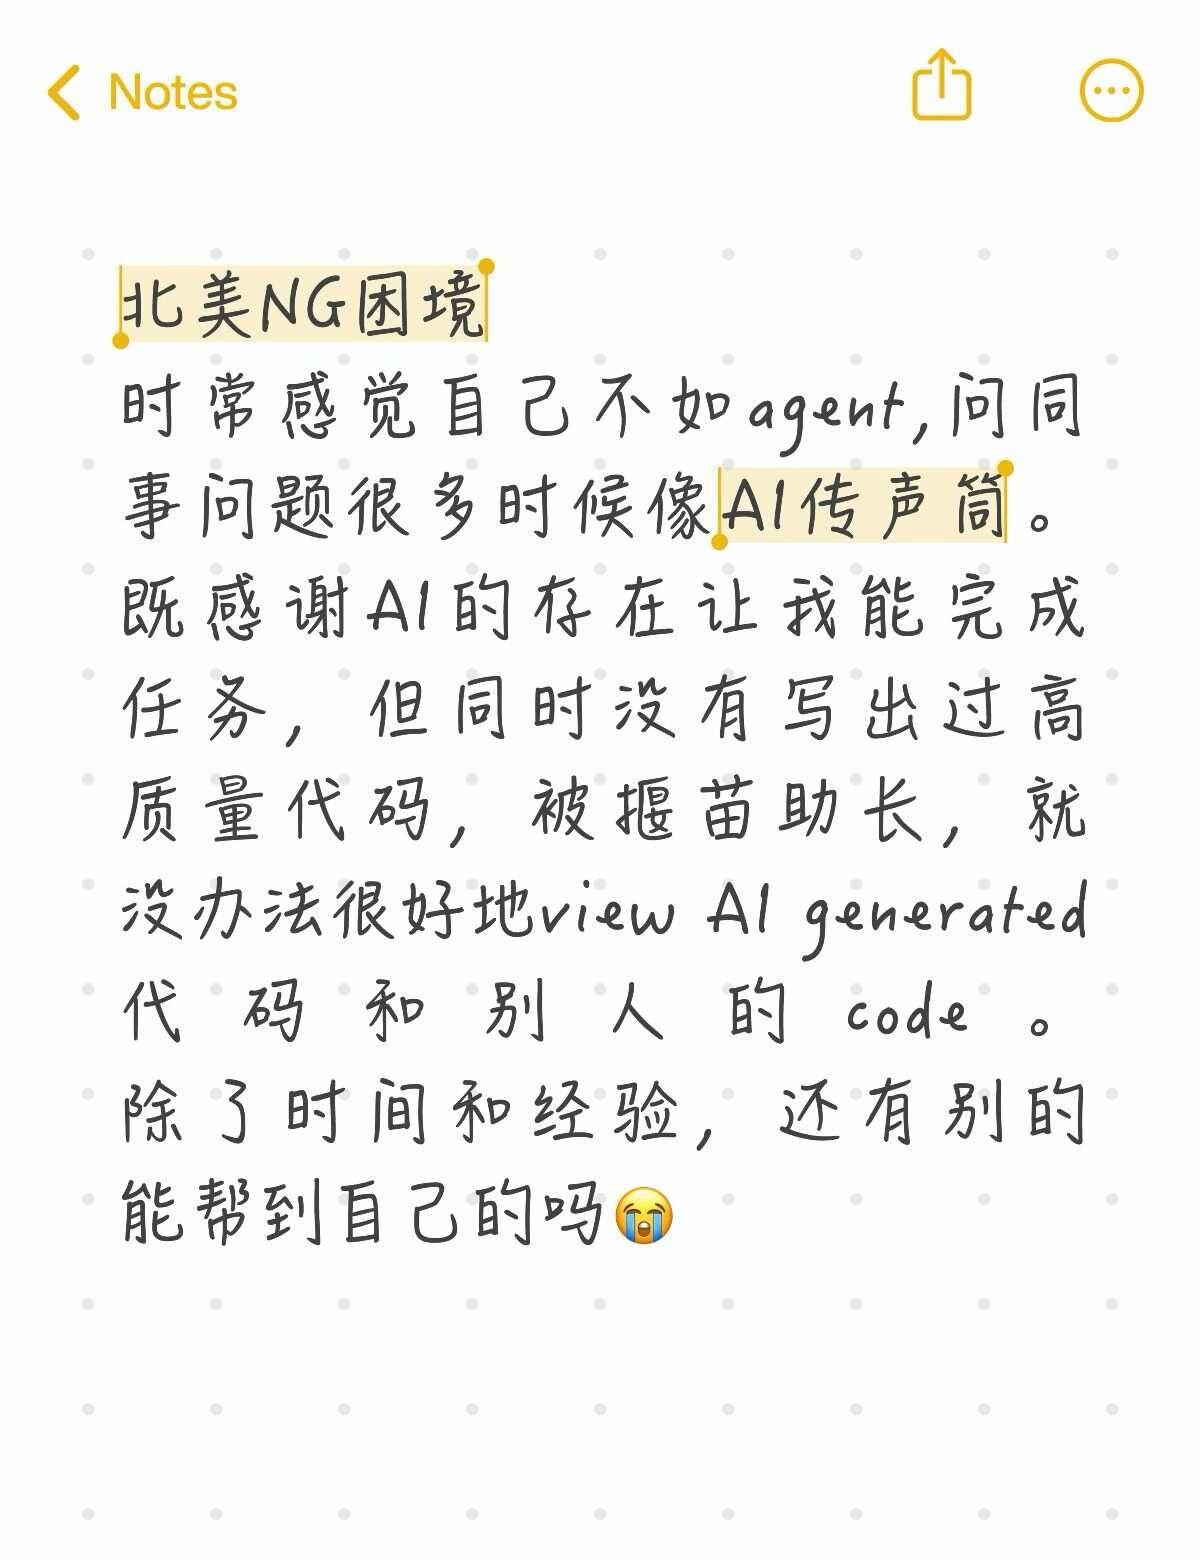 Notes
北美NG困境
时常感觉自己不如agent,问同
事问题很多时候像AI传声筒。
既感谢AI的存在让我能完成
任务，但同时没有写出过高
质量代码，被揠苗助长，就
没办法很好地view AI generated
代码和别人的code。
除了时间和经验，还有别的
能帮到自己的吗😭